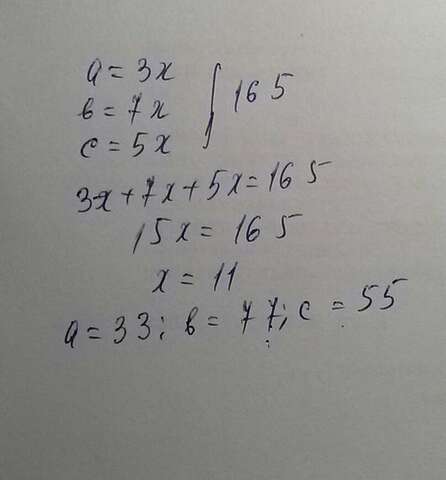 a = 3x
b = 7x } 165
c = 5x
3x + 7x + 5x = 165
15x = 165
x = 11
a = 33; b = 77; c = 55